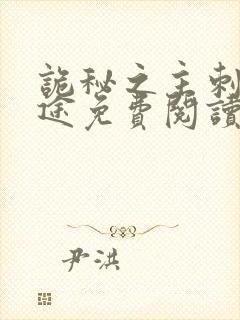 詭秘之主刺
途免費閱讀
尹洪